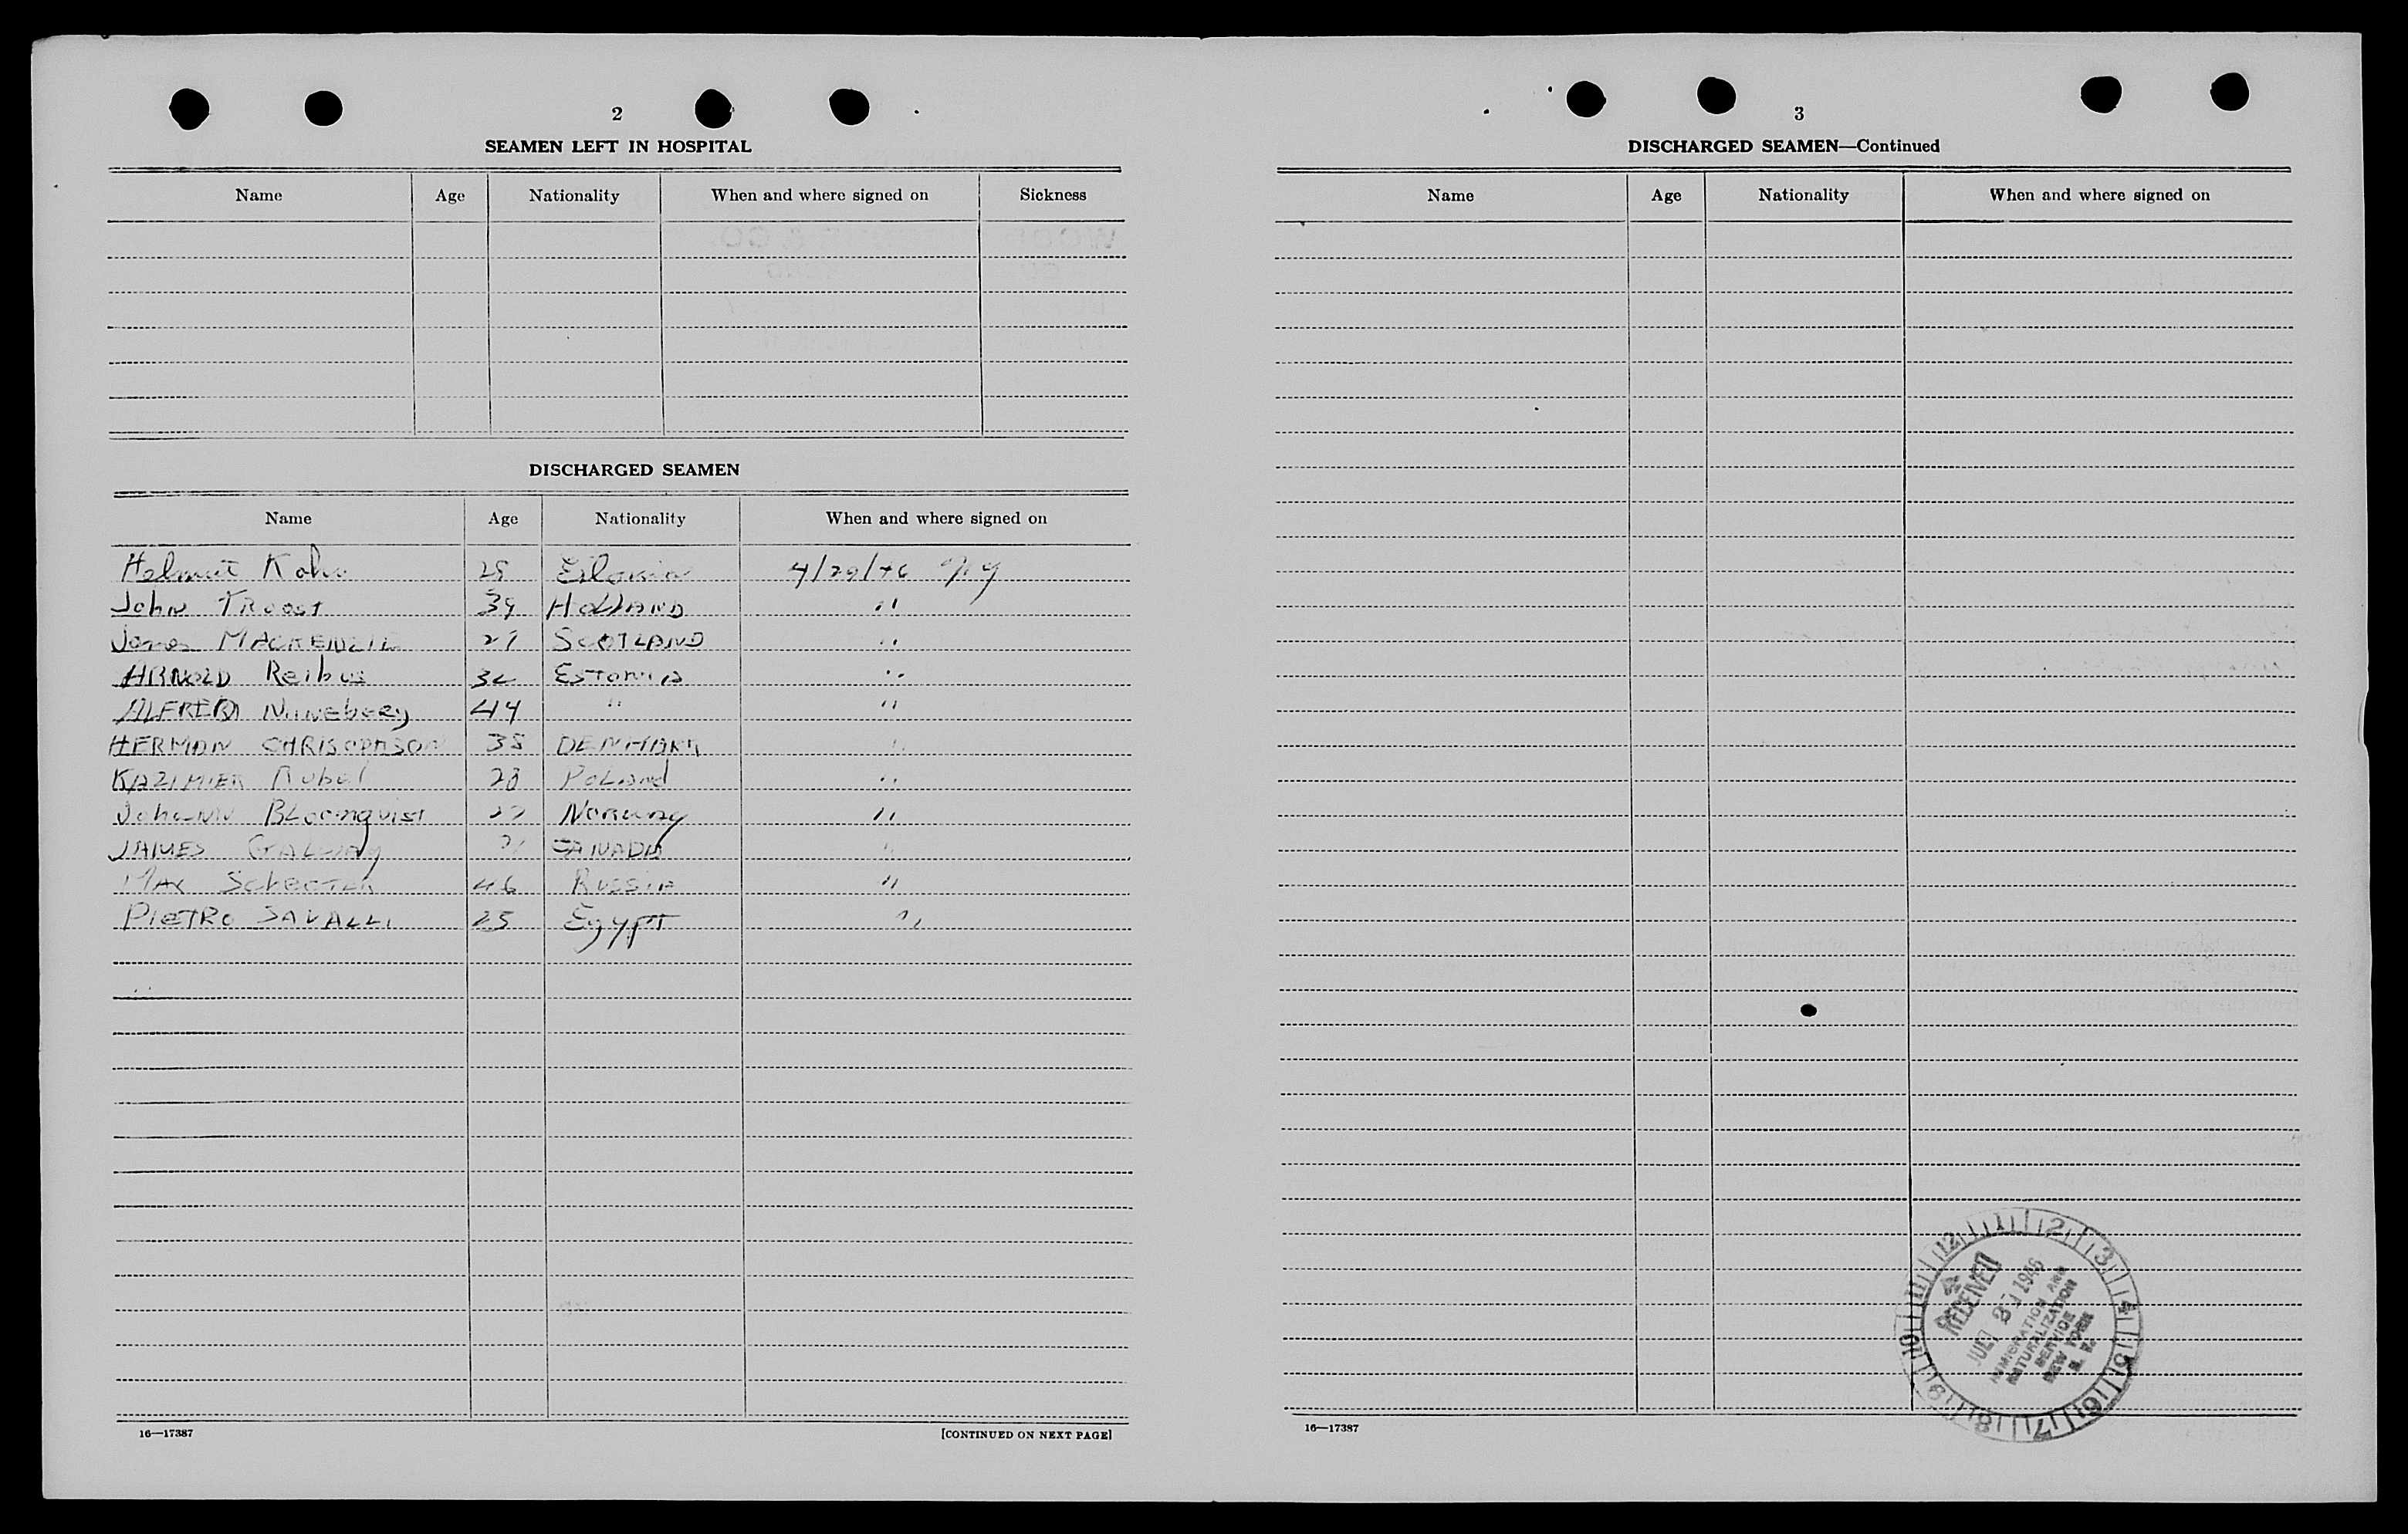 2
SEAMEN LEFT IN HOSPITAL
Name Age Nationality When and where signed on Sickness
DISCHARGED SEAMEN
Name Age Nationality When and where signed on
Helmut 4/29/46 NY
John TROOST 39 HOLLAND "
MACKENZIE SCOTLAND "
ARNOLD Reibus Estonia "
ALFRED 44 " "
HERMAN 35 DENMARK "
KAZIMIER 28 PoLand "
Johann BLoomquist Norway "
JAMES GALWAY CANADA "
MAX 46 RUSSIA "
PIETRO SAVALLI 25 Egypt "
16—17387 [CONTINUED ON NEXT PAGE]
3
DISCHARGED SEAMEN—Continued
Name Age Nationality When and where signed on
RECEIVED
1946
IMMIGRATION AND
NATURALIZATION
SERVICE
NEW YORK
N. Y.
12 1 2 3 4 5 6 7 8 9 10 11
16—17387